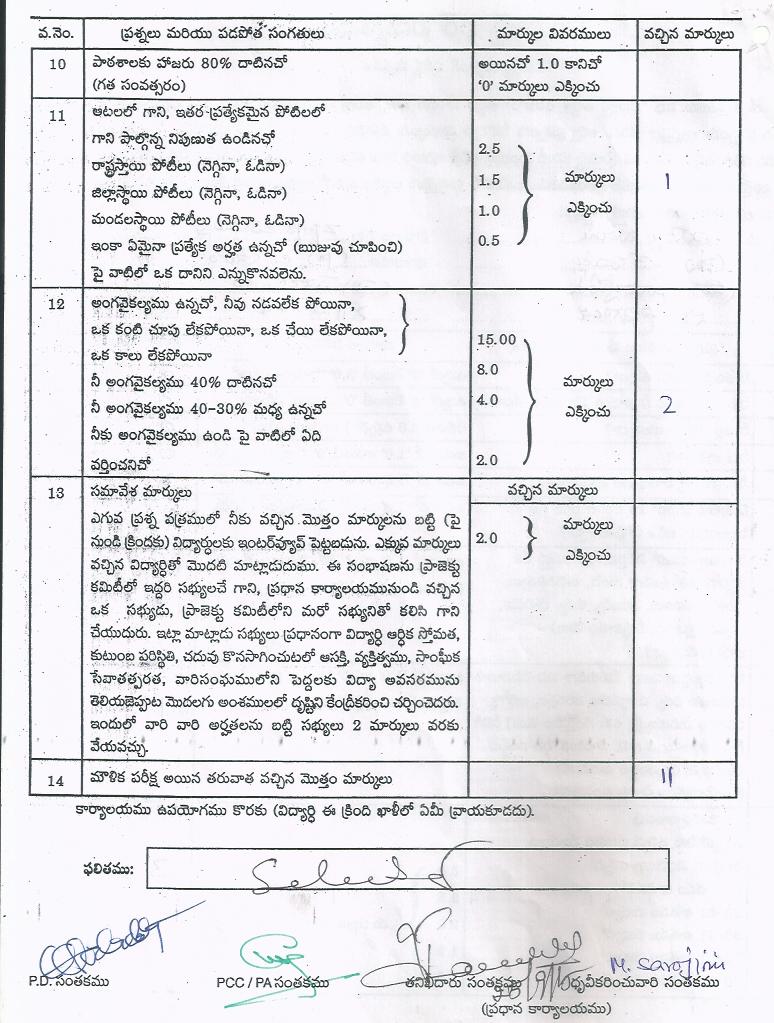 వ.నెం. ప్రశ్నలు మరియు పడపోత సంగతులు మార్కుల వివరములు వచ్చిన మార్కులు
10 పాఠశాలకు హాజరు 80% దాటినచో అయినచో 1.0 కానిచో
(గత సంవత్సరం) '0' మార్కులు ఎక్కించు
11 ఆటలలో గాని, ఇతర ప్రత్యేకమైన పోటిలలో
గాని పాల్గొన్న నిపుణుత ఉండినచో
రాష్ట్రస్థాయి పోటీలు (నెగ్గినా, ఓడినా) 2.5
జిల్లాస్థాయి పోటీలు (నెగ్గినా, ఓడినా) 1.5 మార్కులు 1
మండలస్థాయి పోటీలు (నెగ్గినా, ఓడినా) 1.0 ఎక్కించు
ఇంకా ఏమైనా ప్రత్యేక అర్హత ఉన్నచో (ఋజువు చూపించి) 0.5
పై వాటిలో ఒక దానిని ఎన్నుకొనవలెను.
12 అంగవైకల్యము ఉన్నచో, నీవు నడవలేక పోయినా,
ఒక కంటి చూపు లేకపోయినా, ఒక చేయి లేకపోయినా,
ఒక కాలు లేకపోయినా 15.00
నీ అంగవైకల్యము 40% దాటినచో 8.0 మార్కులు
నీ అంగవైకల్యము 40-30% మధ్య ఉన్నచో 4.0 ఎక్కించు 2
నీకు అంగవైకల్యము ఉండి పై వాటిలో ఏది
వర్తించనిచో 2.0
13 సమావేశ మార్కులు వచ్చిన మార్కులు
ఎగువ ప్రశ్న పత్రములో నీకు వచ్చిన మొత్తం మార్కులను బట్టి (పై
నుండి క్రిందకు) విద్యార్థులకు ఇంటర్వ్యూవ్ పెట్టబడును. ఎక్కువ మార్కులు 2.0 మార్కులు
వచ్చిన విద్యార్థితో మొదటి మాట్లాడుదుము. ఈ సంభాషణను ప్రాజెక్టు ఎక్కించు
కమిటీలో ఇద్దరి సభ్యులచే గాని, ప్రధాన కార్యాలయమునుండి వచ్చిన
ఒక సభ్యుడు, ప్రాజెక్టు కమిటీలోని మరో సభ్యునితో కలిసి గాని
చేయుదురు. ఇట్లా మాట్లాడు సభ్యులు ప్రధానంగా విద్యార్థి ఆర్థిక స్తోమత,
కుటుంబ పరిస్థితి, చదువు కొనసాగించుటలో ఆసక్తి, వ్యక్తిత్వము, సాంఘీక
సేవాతత్పరత, వారిసంఘములోని పెద్దలకు విద్యా అవసరమును
తెలియజెప్పుట మొదలగు అంశములలో దృష్టిని కేంద్రీకరించి చర్చించెదరు.
ఇందులో వారి వారి అర్హతలను బట్టి సభ్యులు 2 మార్కులు వరకు
వేయవచ్చు.
14 మౌళిక పరీక్ష అయిన తరువాత వచ్చిన మొత్తం మార్కులు 11
కార్యాలయము ఉపయోగము కొరకు (విద్యార్థి ఈ క్రింది ఖాళీలో ఏమీ వ్రాయకూడదు).
ఫలితము: Selected
M. Sarojini
P.D. సంతకము PCC / PA సంతకము తనిఖీదారు సంతకము ధృవీకరించువారి సంతకము
(ప్రధాన కార్యాలయము)